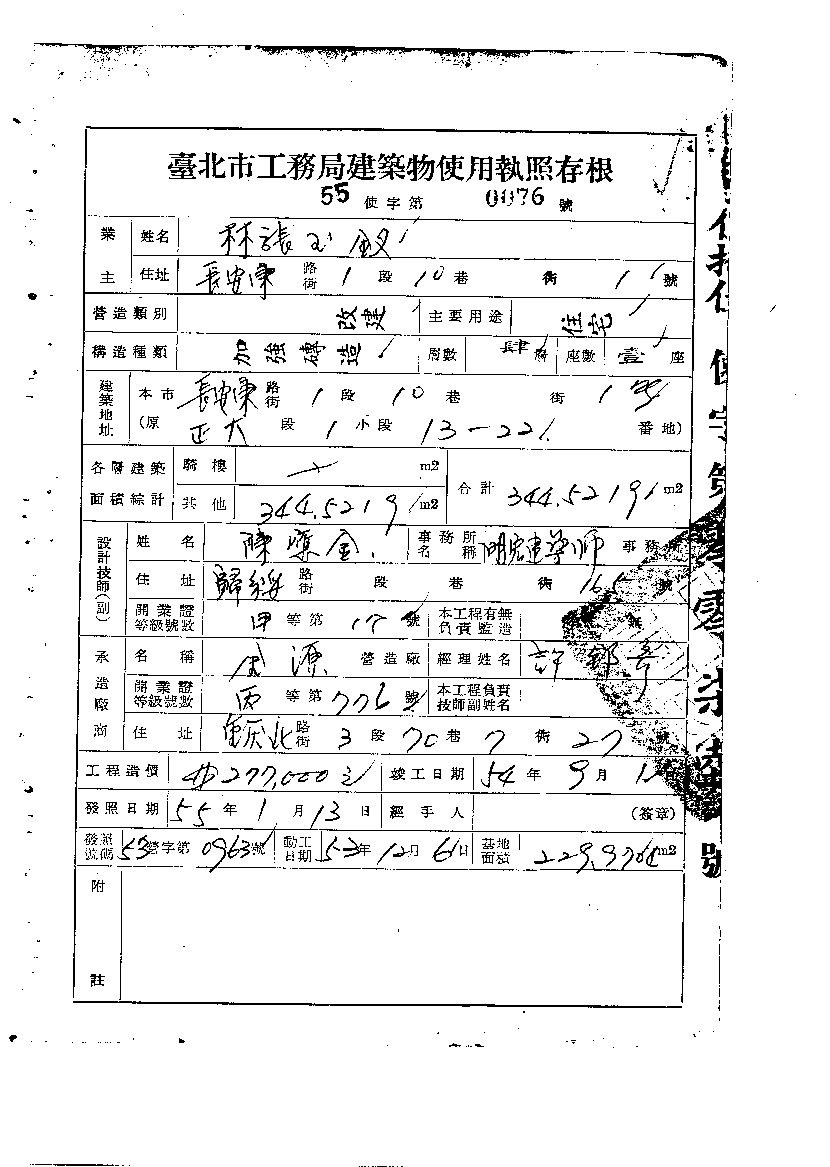 臺北市工務局建築物使用執照存根
55 使字第 0076 號
業主 姓名 林張玉
住址 長安東 路街 1 段 10 巷 街 1 號
營造類別 改建 主要用途 住宅
構造種類 加強磚造 層數 肆 層 座數 壹 座
建築地址 本市 長安東 路街 1 段 10 巷 街 1 號
(原 正大 段 1 小段 13-22 番地)
各層建築面積綜計 騎樓 m2 合計 344.5219 m2
其他 344.5219 m2
設計技師(副) 姓名 陳 金 事務所名稱 建築師 事務
住址 歸綏 路街 段 巷 街 165 號
開業證等級號數 甲 等第 17 號 本工程有無負責監造
承造廠商 名稱 源 營造廠 經理姓名 許
開業證等級號數 丙 等第 776 號 本工程負責技師副姓名
住址 重慶北 路街 3 段 70 巷 7 街 27 號
工程造價 277,000 竣工日期 54 年 9 月 1
發照日期 55 年 1 月 13 日 經手人 (簽章)
發照號碼 53 營字第 0963 號 動工日期 53 年 12 月 6 日 基地面積 m2
附註
使字第零零柒 號